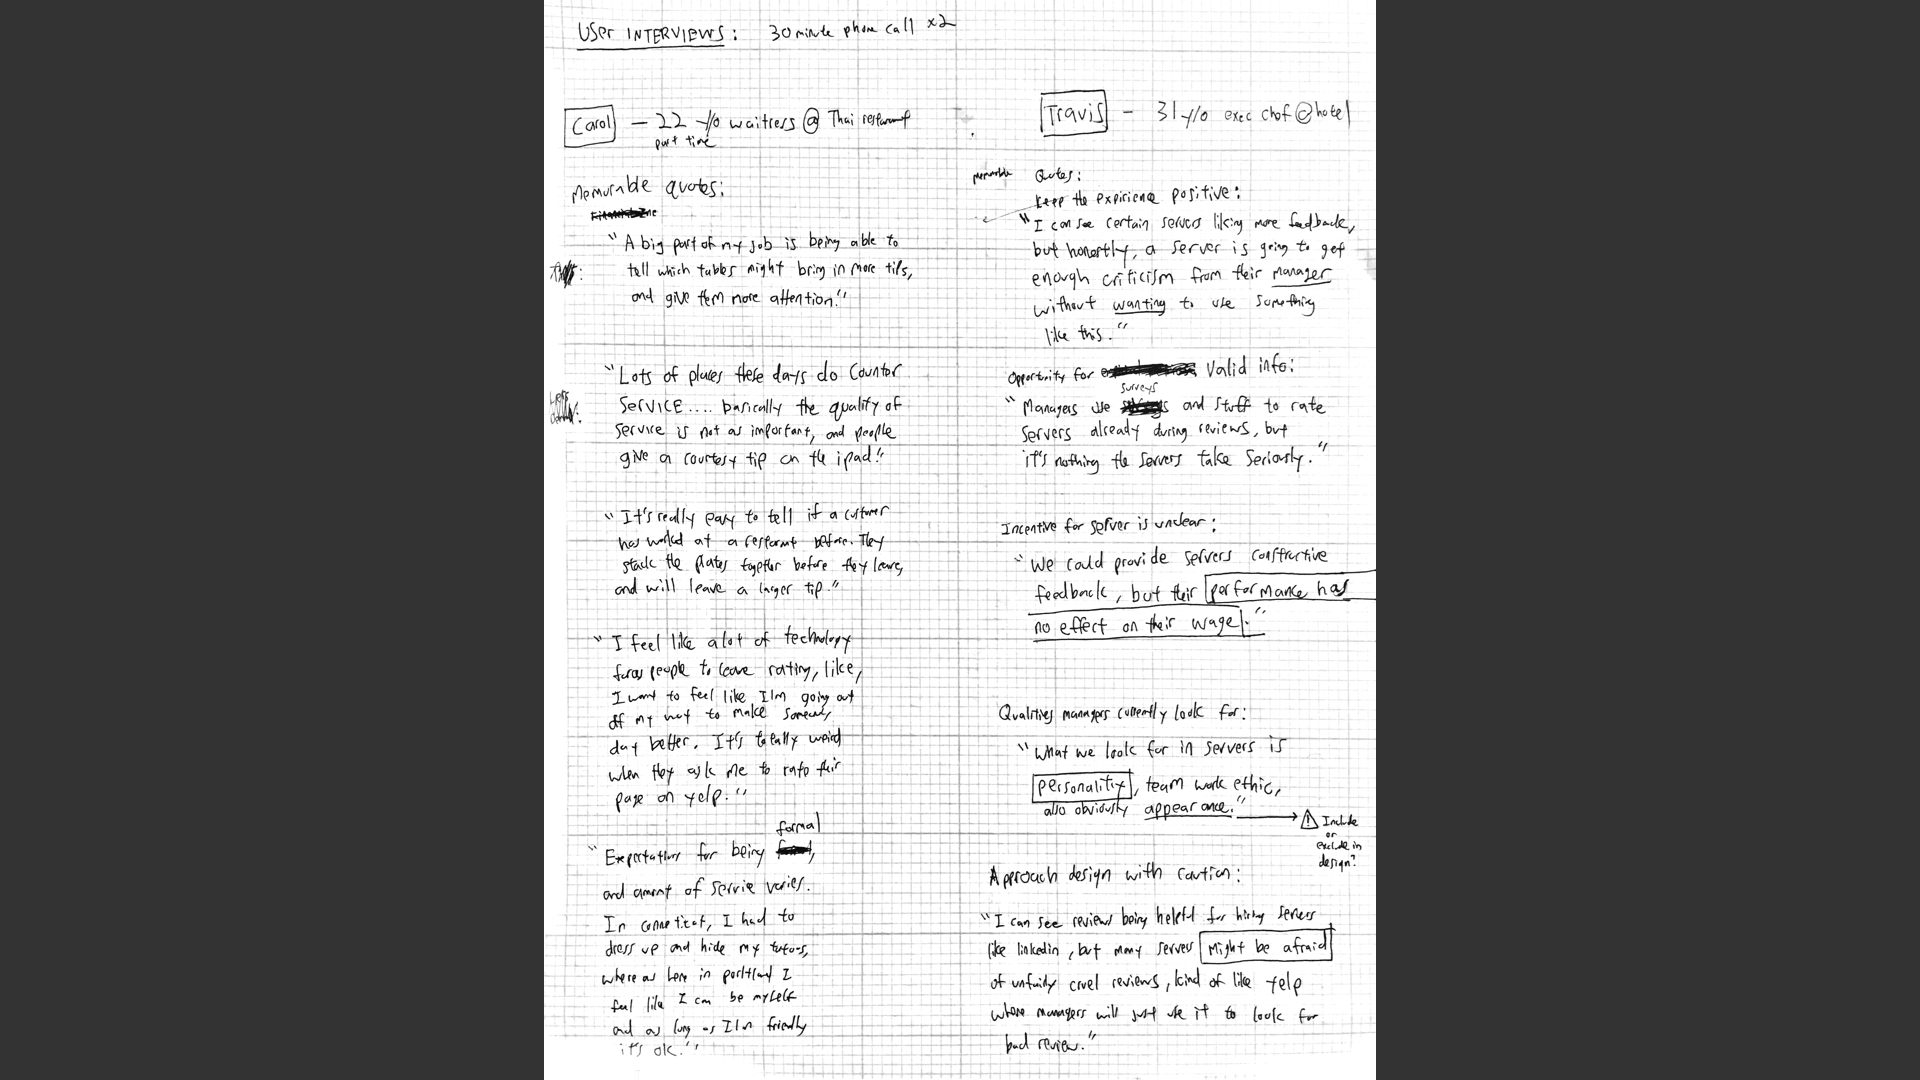 USER INTERVIEWS: 30 minute phone call x2
Carol — 22 y/o waitress @ Thai restaurant
part time
Memorable quotes:
"A big part of my job is being able to
tell which tables might bring in more tips,
and give them more attention."
"Lots of places these days do Counter
SERVICE.... basically the quality of
service is not as important, and people
give a courtesy tip on the ipad."
"It's really easy to tell if a customer
has worked at a restaurant before. They
stack the plates together before they leave,
and will leave a larger tip."
"I feel like a lot of technology
forces people to leave rating, like,
I want to feel like I'm going out
of my way to make somebody
day better. It's totally weird
when they ask me to rate their
page on yelp."
formal
"Expectations for being ,
and amount of service varies.
In conneticut, I had to
dress up and hide my tattoos,
where as here in portland I
feel like I can be myself
and as long as I'm friendly
it's ok."
Travis - 31 y/o exec chef @ hotel
memorable Quotes:
keep the expirience positive:
"I can see certain servers liking more feedback,
but honestly, a server is going to get
enough criticism from their manager
without wanting to use something
like this."
Opportunity for Valid info:
surveys
"Managers use and stuff to rate
servers already during reviews, but
it's nothing the servers take seriously."
Incentive for server is unclear:
"We could provide servers constructive
feedback, but their performance has
no effect on their wage."
Qualities managers currently look for:
"What we look for in servers is
personality, team work ethic,
also obviously appearance."
! Include
or
exclude in
design?
Approach design with caution:
"I can see reviews being helpful for hiring servers
like linkedin, but many servers might be afraid
of unfairly cruel reviews, kind of like yelp
where managers will just use it to look for
bad review."